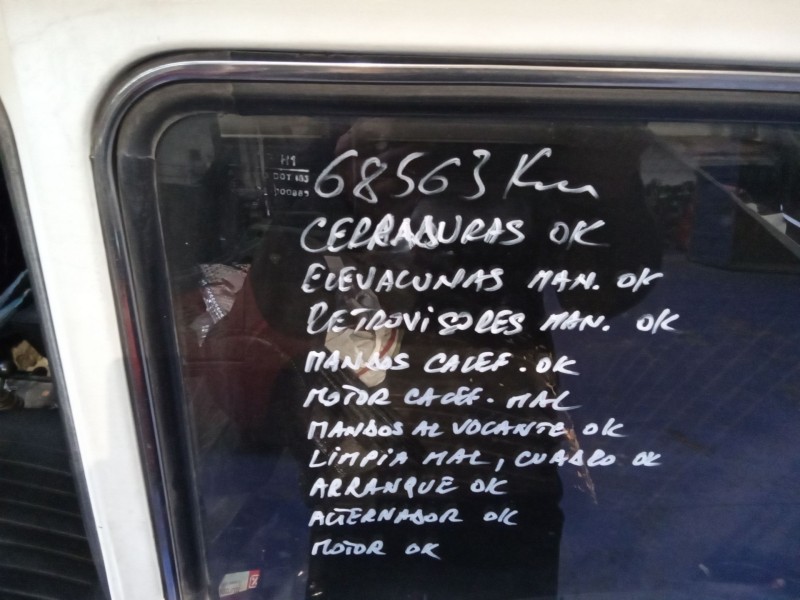 68563 Km
CERRADURAS OK
ELEVALUNAS MAN. OK
RETROVISORES MAN. OK
MANDOS CALEF. OK
MOTOR CALEF. MAL
MANDOS AL VOLANTE OK
LIMPIA MAL, CUADRO OK
ARRANQUE OK
ALTERNADOR OK
MOTOR OK